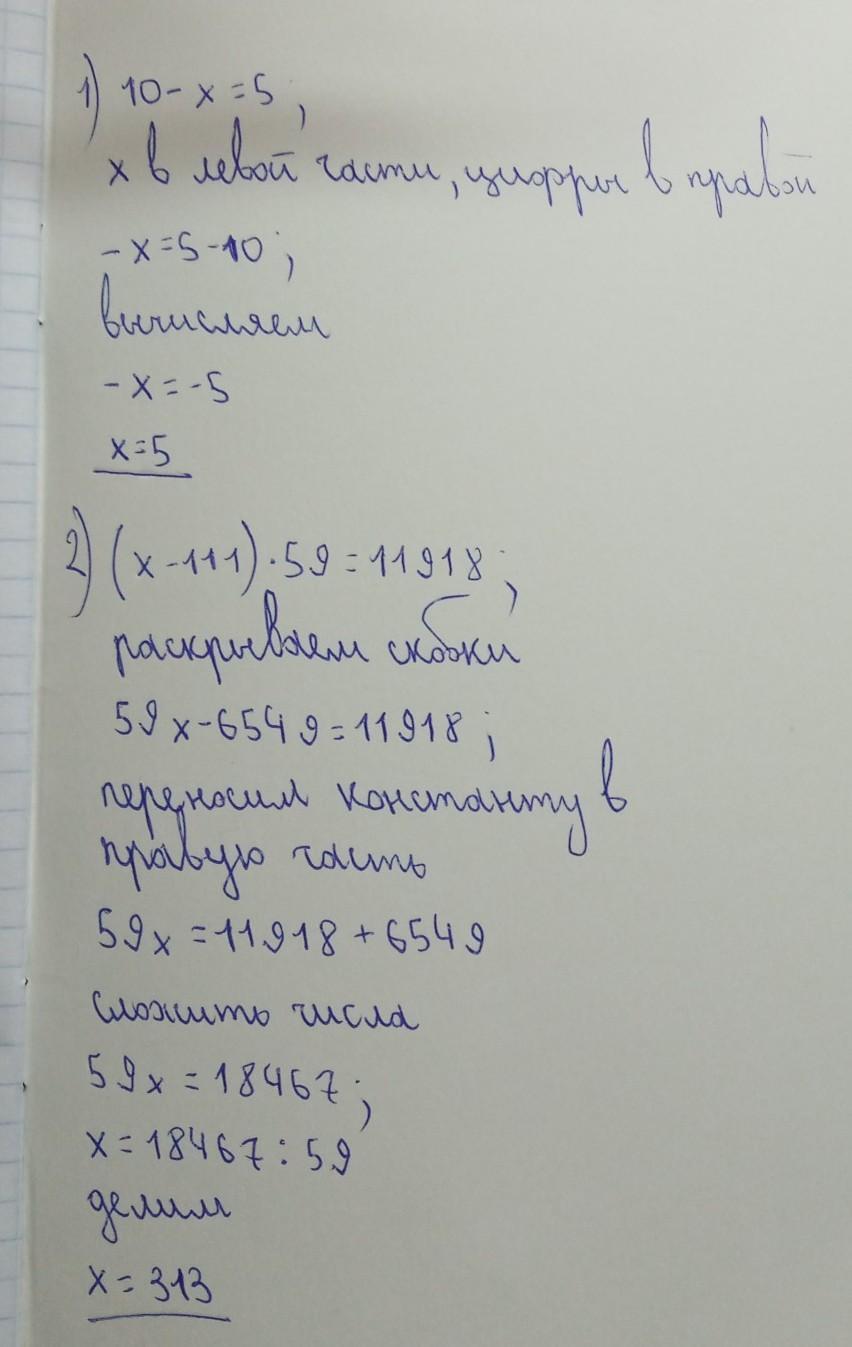 1) 10 - x = 5 ;
x в левой части, цифры в правой
- x = 5 - 10 ;
вычисляем
- x = - 5
x = 5
2) (x - 111) · 59 = 11918 ;
раскрываем скобки
59x - 6549 = 11918 ;
переносим константу в
правую часть
59x = 11918 + 6549
сложить числа
59x = 18467 ;
x = 18467 : 59
делим
x = 313